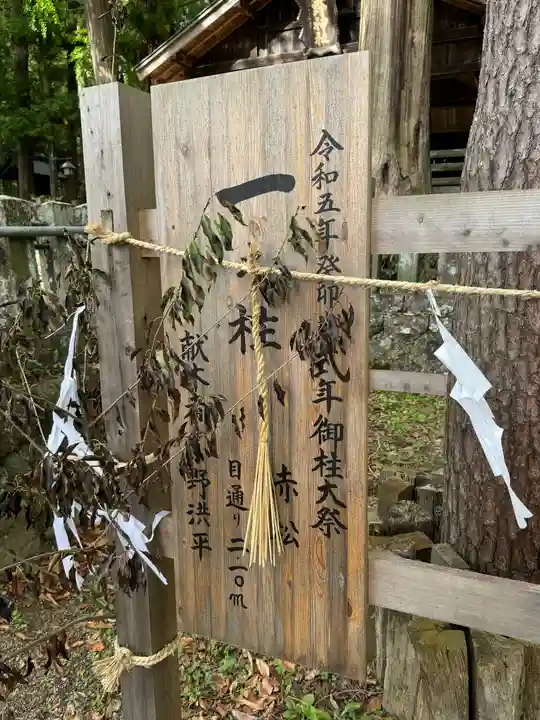 令和五年癸卯 式年御柱大祭
一 柱
赤松
目通り 二.二〇m
献木 野洪平